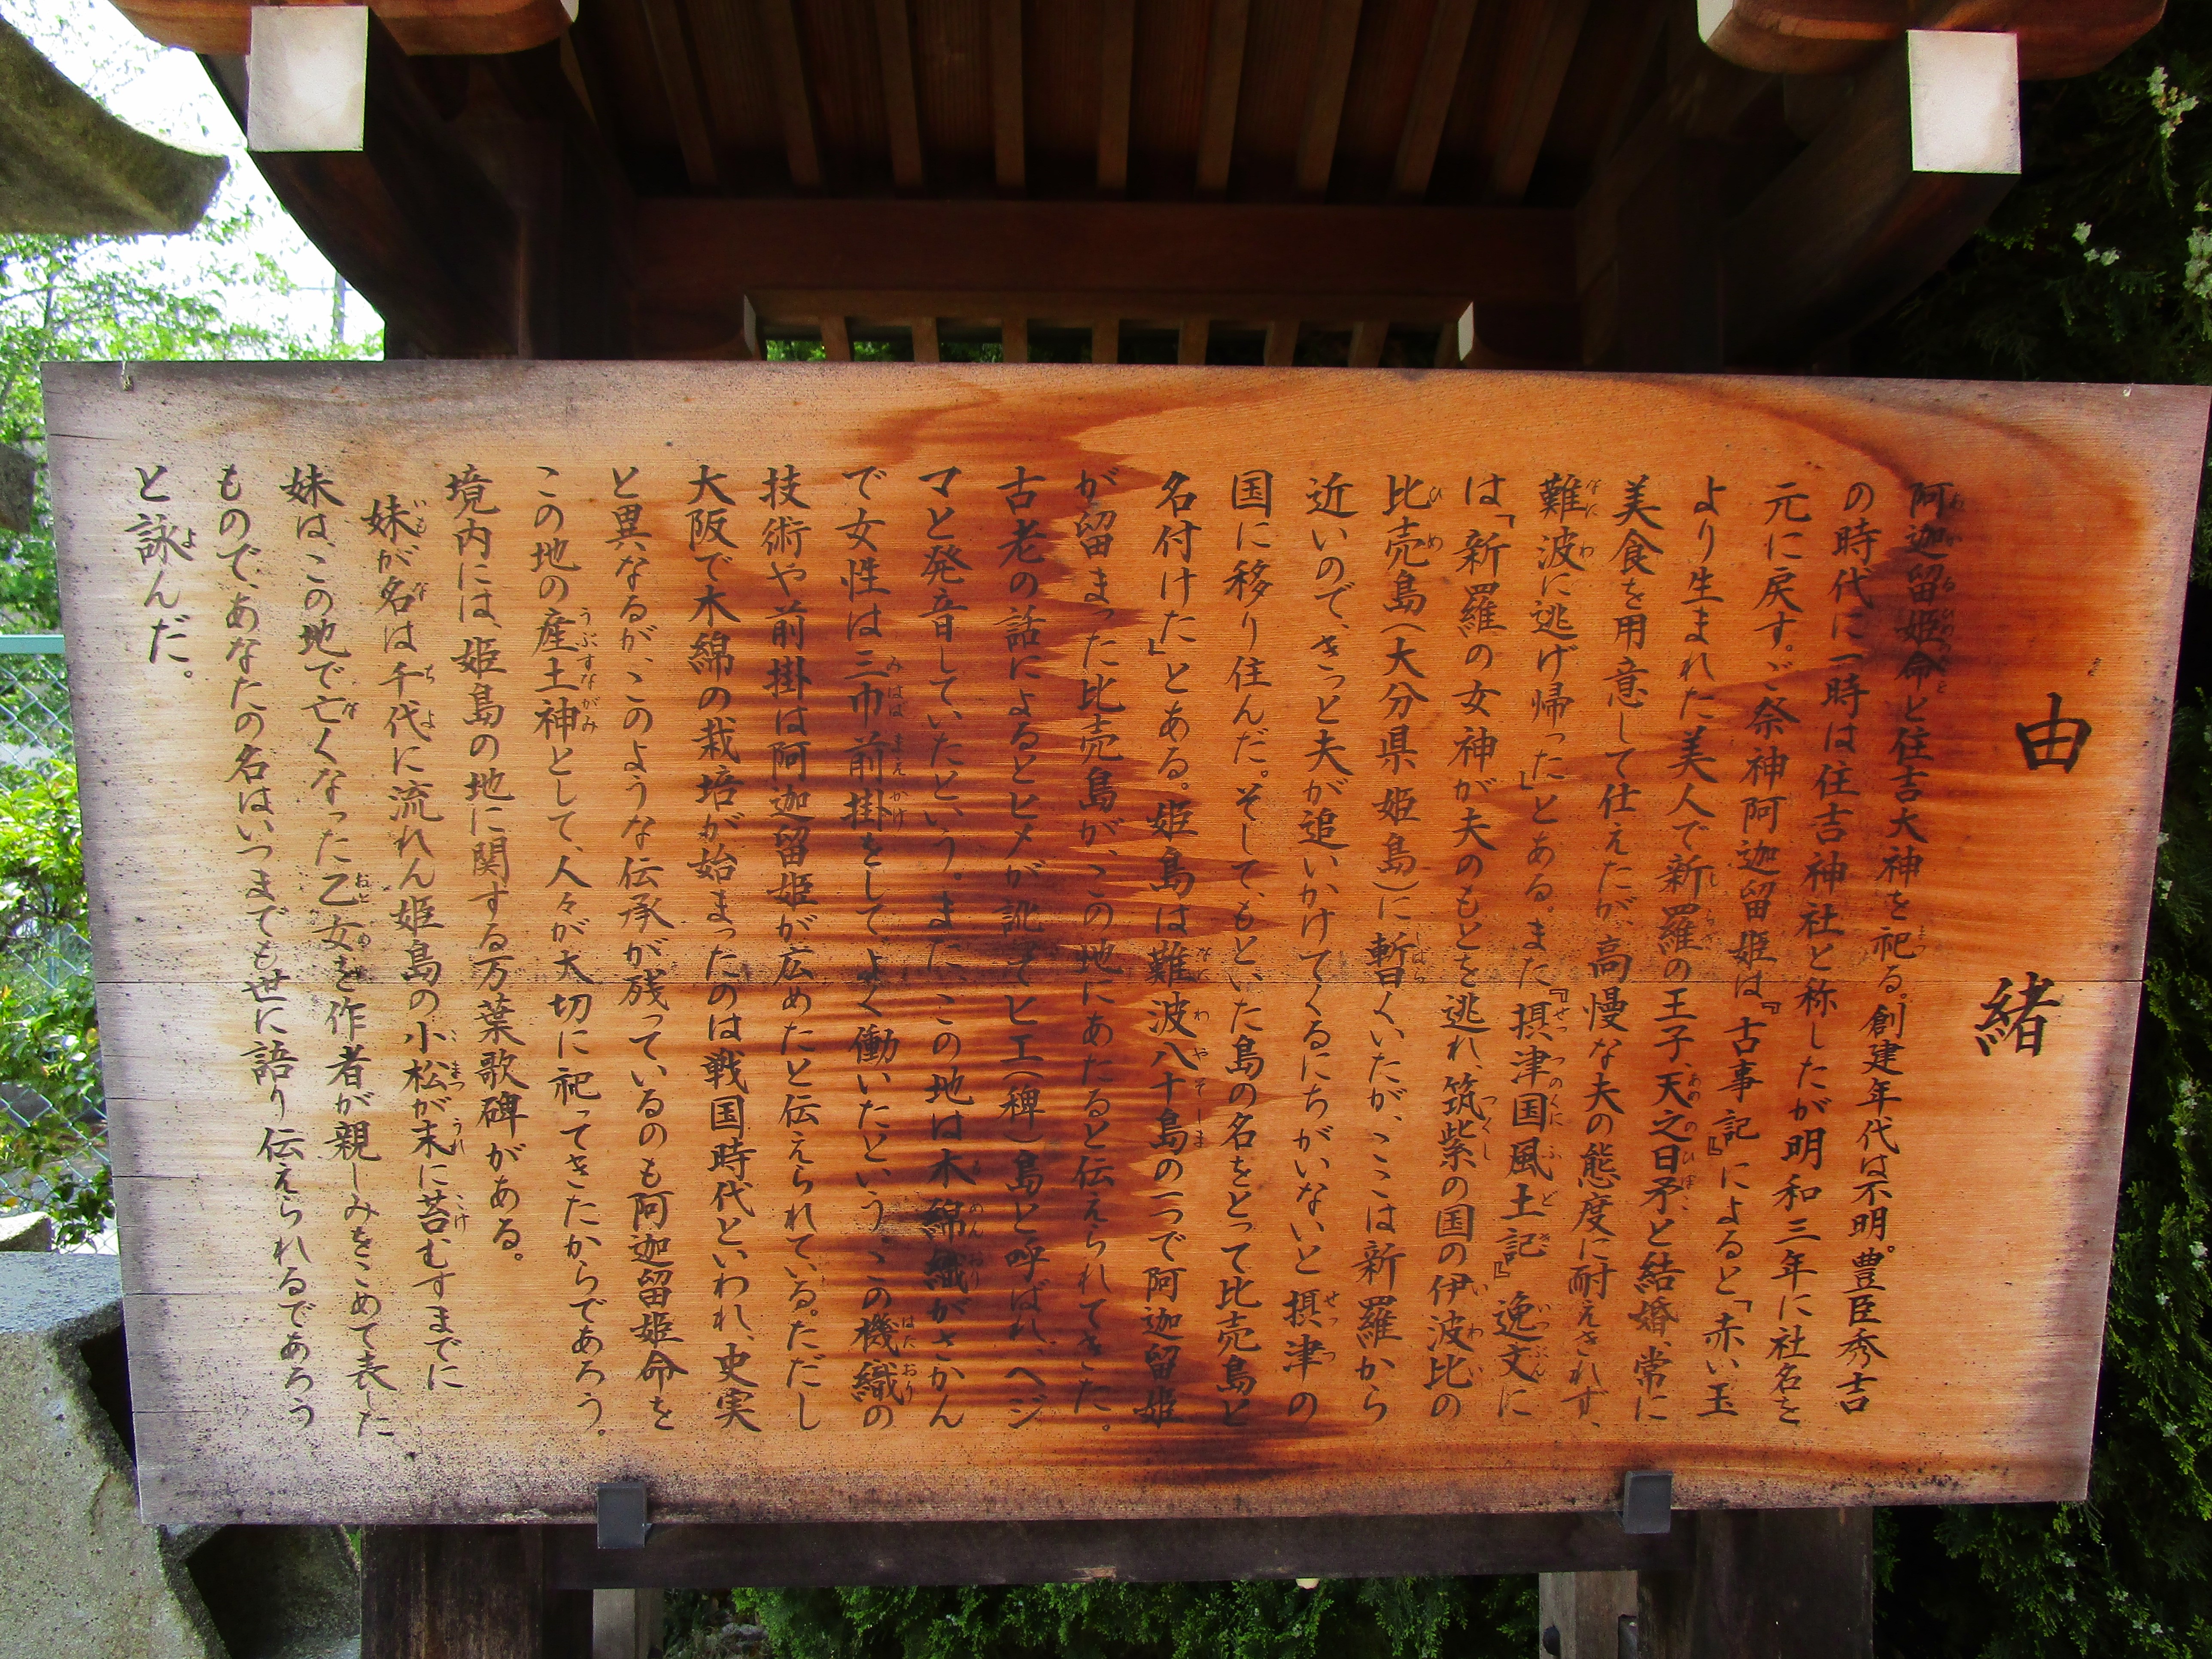 由緒
阿迦留姫命と住吉大神を祀る。創建年代は不明。豊臣秀吉
の時代に一時は住吉神社と称したが明和三年に社名を
元に戻す。ご祭神阿迦留姫は『古事記』によると「赤い玉
より生まれた美人で新羅の王子、天之日矛と結婚、常に
美食を用意して仕えたが、高慢な夫の態度に耐えきれず、
難波に逃げ帰った」とある。また『摂津国風土記』逸文に
は「新羅の女神が夫のもとを逃れ、筑紫の国の伊波比の
比売島(大分県姫島)に暫くいたが、ここは新羅から
近いので、きっと夫が追いかけてくるにちがいないと摂津の
国に移り住んだ。そして、もといた島の名をとって比売島と
名付けた」とある。姫島は難波八十島の一つで阿迦留姫
が留まった比売島が、この地にあたると伝えられてきた。
古老の話によるとヒメが訛ってヒエ(稗)島と呼ばれ、ヘジ
マと発音していたという。また、この地は木綿織がさかん
で女性は三巾前掛をしてよく働いたという、この機織の
技術や前掛は阿迦留姫が広めたと伝えられている。ただし
大阪で木綿の栽培が始まったのは戦国時代といわれ、史実
と異なるが、このような伝承が残っているのも阿迦留姫命を
この地の産土神として、人々が大切に祀ってきたからであろう。
境内には、姫島の地に関する万葉歌碑がある。
妹が名は千代に流れん姫島の小松が末に苔むすまでに
妹は、この地で亡くなった乙女を作者が親しみをこめて表した
もので、あなたの名はいつまでも世に語り伝えられるであろう
と詠んだ。